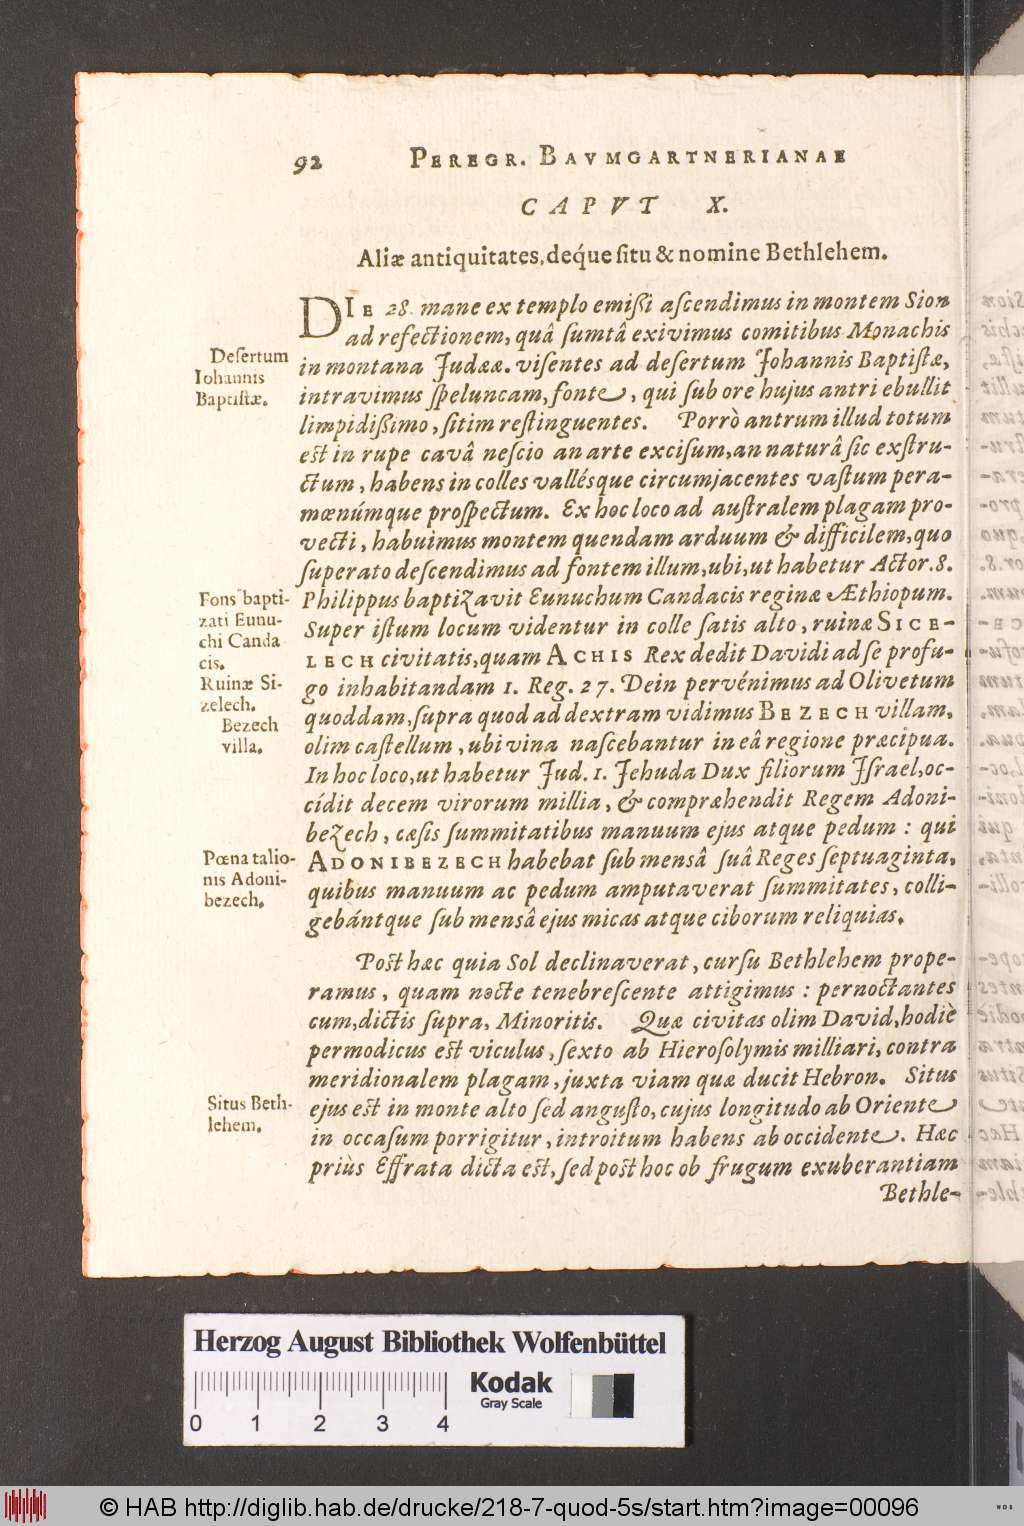 92 PEREGR. BAVMGARTNERIANAE
CAPVT X.
Aliæ antiquitates, deq́ue ſitu & nomine Bethlehem.
DIE 28. mane ex templo emißi aſcendimus in montem Sion
ad refectionem, quâ ſumtâ exivimus comitibus Monachis
in montana Judææ. viſentes ad deſertum Johannis Baptiſtæ,
intravimus ſpeluncam, fonte, qui ſub ore hujus antri ebullit
limpidißimo, ſitim reſtinguentes. Porrò antrum illud totum
est in rupe cavâ neſcio an arte exciſum, an naturâ ſic exſtru-
ctum, habens in colles vallésque circumjacentes vaſtum pera-
mœnúmque proſpectum. Ex hoc loco ad auſtralem plagam pro-
vecti, habuimus montem quendam arduum & difficilem, quo
ſuperato deſcendimus ad fontem illum, ubi, ut habetur Actor. 8.
Philippus baptizavit Eunuchum Candacis reginæ Æthiopum.
Super iſtum locum videntur in colle ſatis alto, ruinæ SICE-
LECH civitatis, quam ACHIS Rex dedit Davidi ad ſe profu-
go inhabitandam 1. Reg. 27. Dein pervénimus ad Olivetum
quoddam, ſupra quod ad dextram vidimus BEZECH villam,
olim caſtellum, ubi vina naſcebantur in eâ regione præcipua.
In hoc loco, ut habetur Jud. 1. Jehuda Dux filiorum Jſrael, oc-
cídit decem virorum millia, & compræhendit Regem Adoni-
bezech, cæſis ſummitatibus manuum ejus atque pedum: qui
ADONIBEZECH habebat ſub mensâ ſuâ Reges ſeptuaginta,
quibus manuum ac pedum amputaverat ſummitates, colli-
gebántque ſub mensâ ejus micas atque ciborum reliquias.
Post hæc quia Sol declinaverat, curſu Bethlehem prope-
ramus, quam nocte tenebreſcente attigimus: pernoctantes
cum, dictis ſupra, Minoritis. Quæ civitas olim David, hodiè
permodicus est viculus, ſexto ab Hieroſolymis milliari, contra
meridionalem plagam, juxta viam quæ ducit Hebron. Situs
ejus est in monte alto ſed anguſto, cujus longitudo ab Oriente
in occaſum porrigitur, introitum habens ab occidente. Hæc
priùs Effrata dicta est, ſed post hoc ob frugum exuberantiam
Bethle-
Deſertum
Iohannis
Baptiſtæ.
Fons bapti-
zati Eunu-
chi Canda
cis.
Ruinæ Si-
zelech.
Bezech
villa.
Pœna talio-
nis Adoni-
bezech.
Situs Beth-
lehem.
Herzog August Bibliothek Wolfenbüttel
Kodak
Gray Scale
0 1 2 3 4
© HAB http://diglib.hab.de/drucke/218-7-quod-5s/start.htm?image=00096